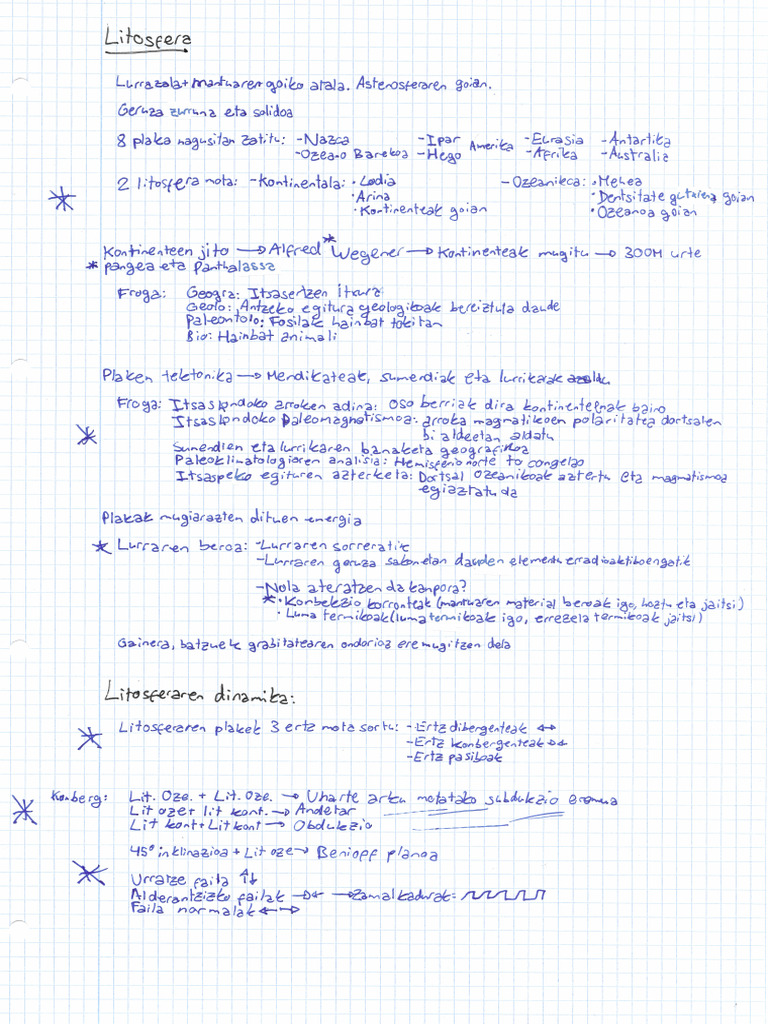 Litosfera
Lurrazala + mantuaren goiko atala. Astenosferaren goian.
Geruza zurruna eta solidoa
8 plaka nagusitan zatitu: -Nazca -Ipar Amerika -Eurasia -Antartika
-Ozeano Barekoa -Hego -Afrika -Australia
2 litosfera mota: -Kontinentala: •Lodia -Ozeanikoa: •Mehea
•Arina •Dentsitate gutxiena goian
•Kontinenteak goian •Ozeanoa goian
Kontinenteen jito → Alfred * Wegener → Kontinenteak mugitu → 300M urte
* pangea eta Panthalassa
Froga: Geogra: Itsasertzen itxura
Geolo: Antzeko egitura geologikoak bereiztuta daude
Paleontolo: Fosilak hainbat tokitan
Bio: Hainbat animali
Plaken tektonika → Mendikateak, sumendiak eta lurrikarak azaldu
Froga: Itsas hondoko arroken adina: Oso berriak dira kontinenteenak baino
Itsas hondoko paleomagnatismoa: arroka magmatikoen polaritatea dortsalen
bi aldeetan aldatu
Sumendien eta lurrikaren banaketa geografikoa
Paleoklimatologiaren analisia: Hemisferio norte to congelao
Itsaspeko egituren azterketa: Dortsal ozeanikoak aztertu eta magmatismoa
egiaztatu da
Plakak mugiarazten dituen energia
* Lurraren beroa: -Lurraren sorreratik
-Lurraren geruza sakonetan dauden elementu erradioaktiboengatik
-Nola ateratzen da kanpora?
* • Konbekzio korronteak (mantuaren material beroak igo, hoztu eta jaitsi)
• Luma termikoak (luma termikoak igo, errezela termikoak jaitsi)
Gainera, batzuek grabitatearen ondorioz ere mugitzen dela
Litosferaren dinamika:
Litosferaren plakek 3 ertz mota sortu: -Ertz dibergenteak ↔
-Ertz konbergenteak →←
-Ertz pasiboak
Konberg: Lit. Oze. + Lit. Oze. → Uharte arku motatako subdukzio eremua
Lit oze + lit kont. → Andetar
Lit kont + Lit kont → Obdukzio
45º inklinazioa + Lit oze → Benioff planoa
Urratze faila ↑↓
Alderantzizko failak →← → Zamalkadurak:
Faila normalak ← →